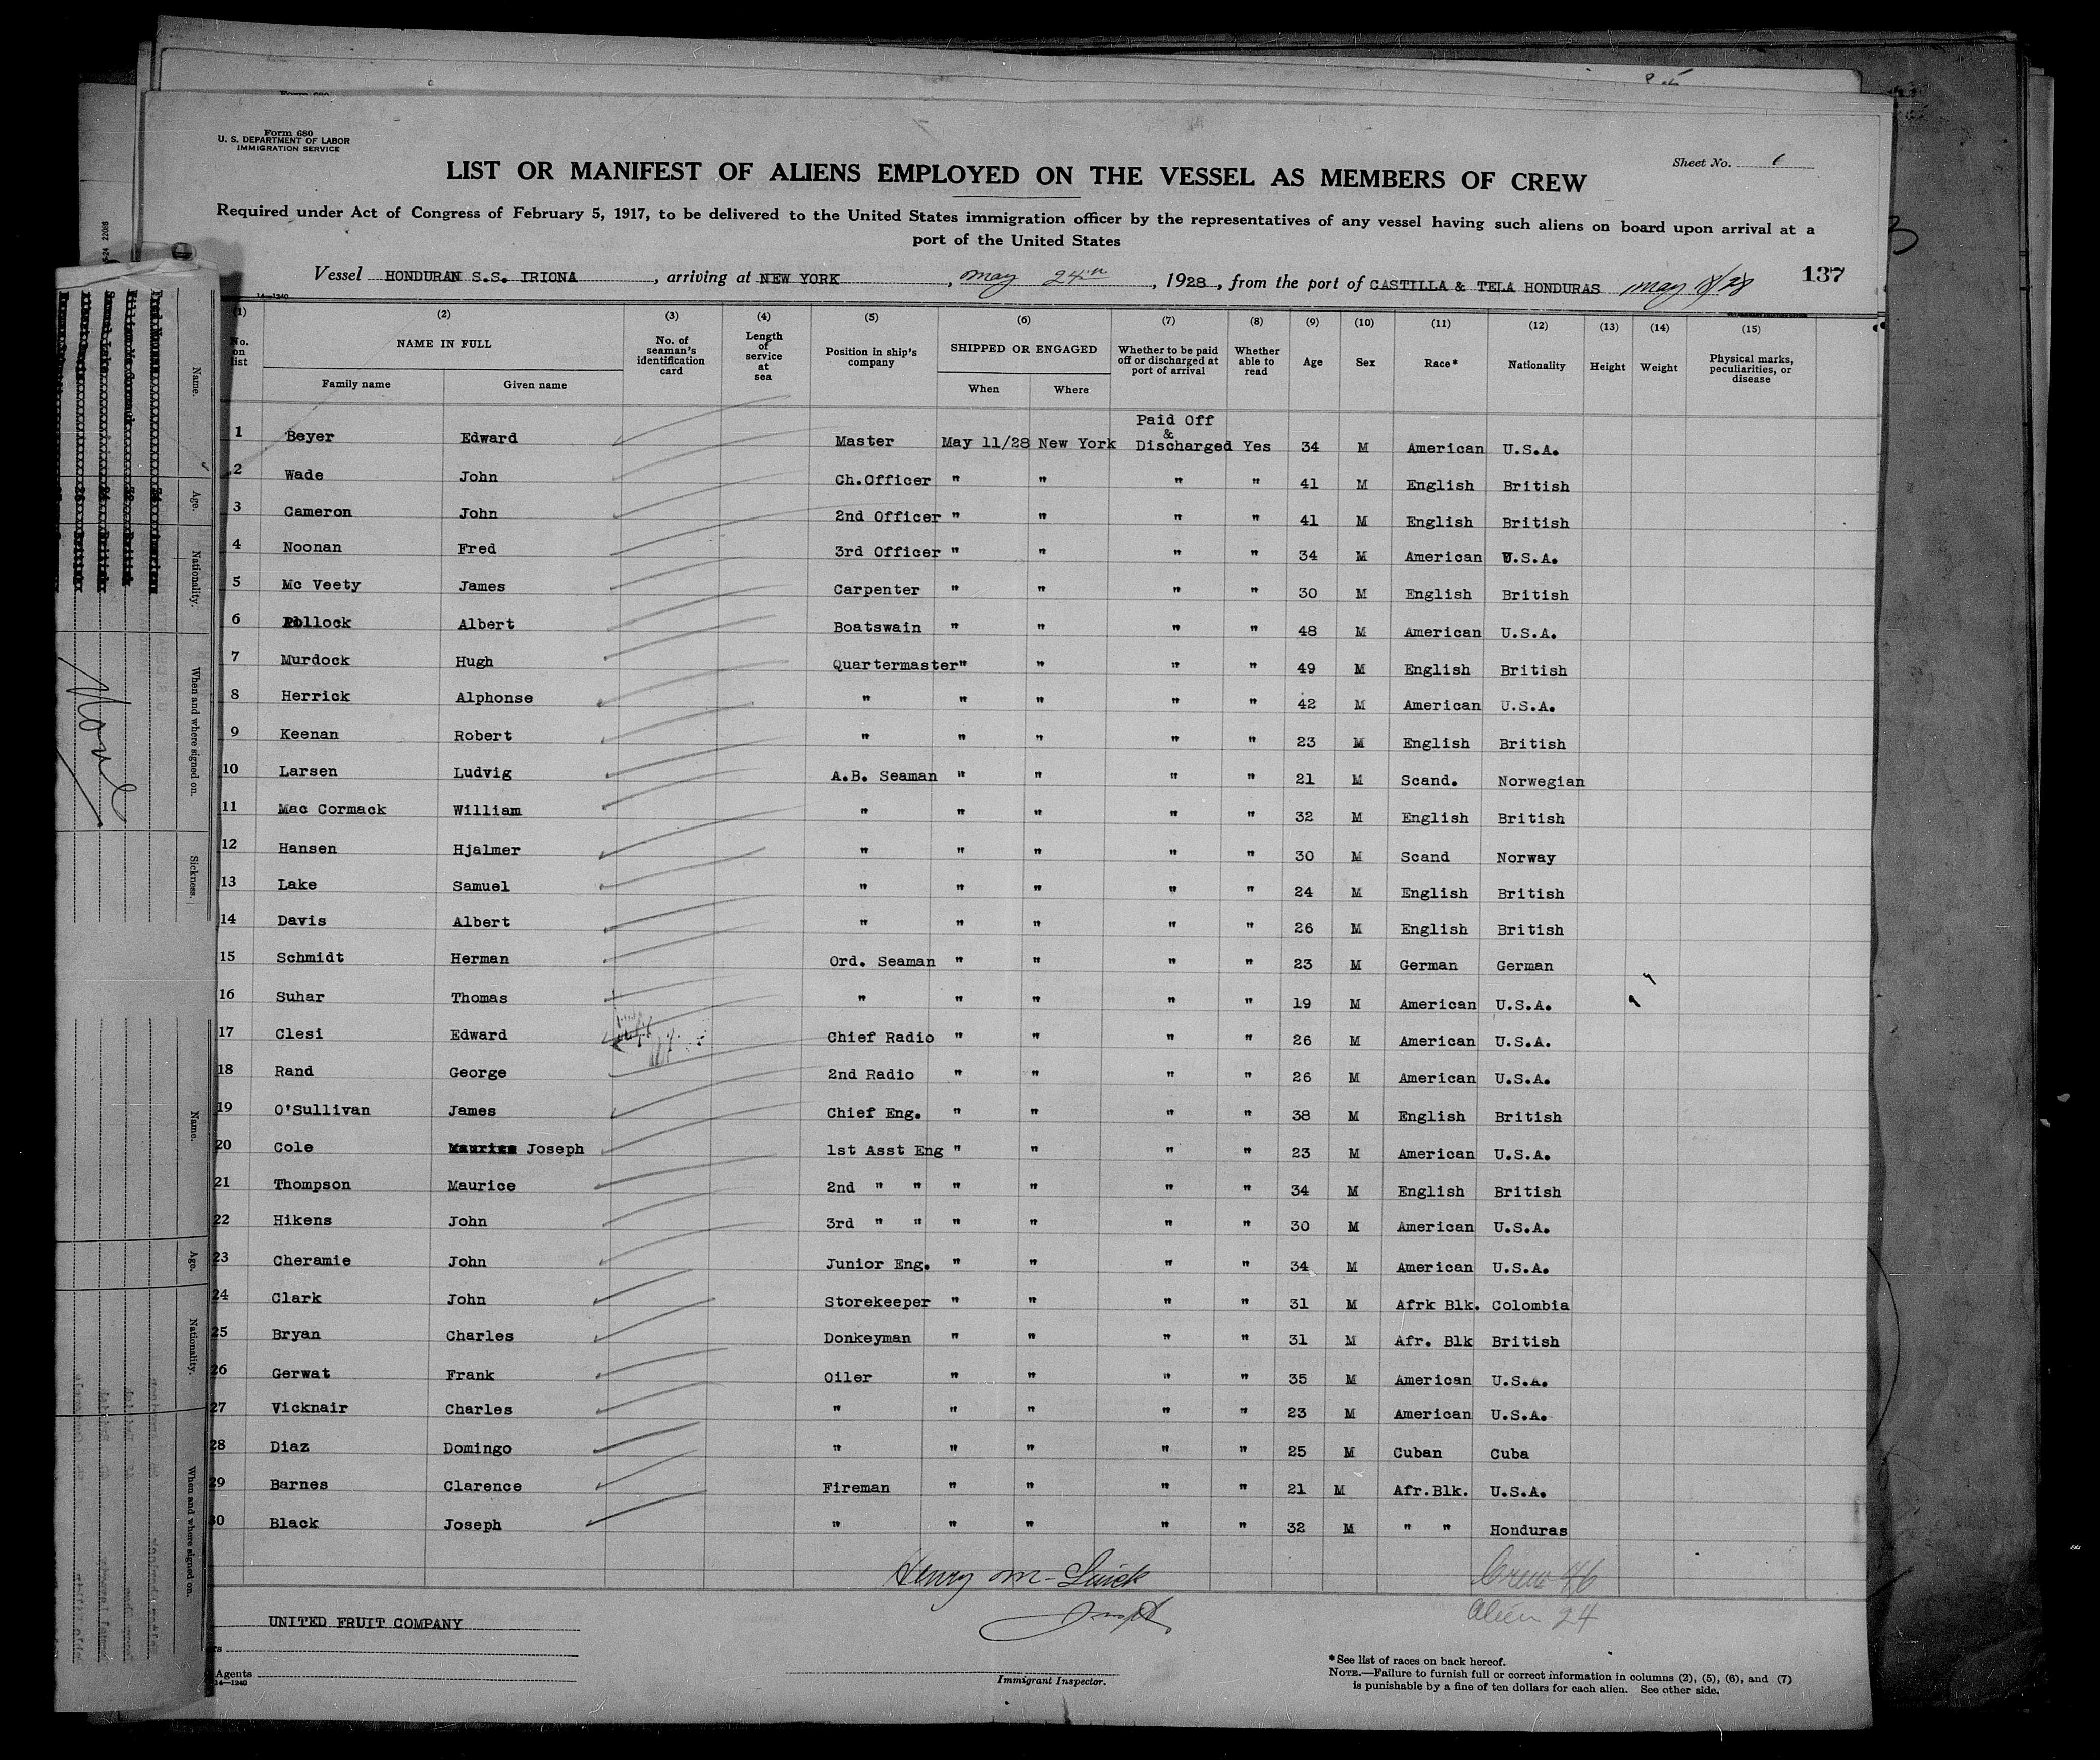 Form 680
U. S. DEPARTMENT OF LABOR
IMMIGRATION SERVICE
Sheet No.
LIST OR MANIFEST OF ALIENS EMPLOYED ON THE VESSEL AS MEMBERS OF CREW
Required under Act of Congress of February 5, 1917, to be delivered to the United States immigration officer by the representatives of any vessel having such aliens on board upon arrival at a
port of the United States
Vessel HONDURAN S.S. IRIONA, arriving at NEW YORK, May 24th, 1928, from the port of CASTILLA & TELA HONDURAS May 18/28 137
14—1240
(1) (2) (3) (4) (5) (6) (7) (8) (9) (10) (11) (12) (13) (14) (15)
No. on list NAME IN FULL Family name Given name No. of seaman's identification card Length of service at sea Position in ship's company SHIPPED OR ENGAGED When Where Whether to be paid off or discharged at port of arrival Whether able to read Age Sex Race* Nationality Height Weight Physical marks, peculiarities, or disease
Paid Off
&
1 Beyer Edward Master May 11/28 New York Discharged Yes 34 M American U.S.A.
2 Wade John Ch.Officer " " " " 41 M English British
3 Cameron John 2nd Officer " " " " 41 M English British
4 Noonan Fred 3rd Officer " " " " 34 M American U.S.A.
5 Mc Veety James Carpenter " " " " 30 M English British
6 Pollock Albert Boatswain " " " " 48 M American U.S.A.
7 Murdock Hugh Quartermaster " " " " 49 M English British
8 Herrick Alphonse " " " " " 42 M American U.S.A.
9 Keenan Robert " " " " " 23 M English British
10 Larsen Ludvig A.B. Seaman " " " " 21 M Scand. Norwegian
11 Mac Cormack William " " " " " 32 M English British
12 Hansen Hjalmer " " " " " 30 M Scand Norway
13 Lake Samuel " " " " " 24 M English British
14 Davis Albert " " " " " 26 M English British
15 Schmidt Herman Ord. Seaman " " " " 23 M German German
16 Suhar Thomas " " " " " 19 M American U.S.A.
17 Clesi Edward Chief Radio " " " " 26 M American U.S.A.
18 Rand George 2nd Radio " " " " 26 M American U.S.A.
19 O'Sullivan James Chief Eng. " " " " 38 M English British
20 Cole Joseph 1st Asst Eng " " " " 23 M American U.S.A.
21 Thompson Maurice 2nd " " " " " " 34 M English British
22 Hikens John 3rd " " " " " " 30 M American U.S.A.
23 Cheramie John Junior Eng. " " " " 34 M American U.S.A.
24 Clark John Storekeeper " " " " 31 M Afrk Blk. Colombia
25 Bryan Charles Donkeyman " " " " 31 M Afr. Blk British
26 Gerwat Frank Oiler " " " " 35 M American U.S.A.
27 Vicknair Charles " " " " " 23 M American U.S.A.
28 Diaz Domingo " " " " " 25 M Cuban Cuba
29 Barnes Clarence Fireman " " " " 21 M Afr.Blk. U.S.A.
30 Black Joseph " " " " " 32 M " " Honduras
Henry M-
Crew 46
Alien 24
UNITED FRUIT COMPANY
Agents
14—1240
Immigrant Inspector.
*See list of races on back hereof.
NOTE.—Failure to furnish full or correct information in columns (2), (5), (6), and (7)
is punishable by a fine of ten dollars for each alien. See other side.
Name. Age. Nationality. When and where signed on. Sickness.
None
Name. Age. Nationality. When and where signed on.